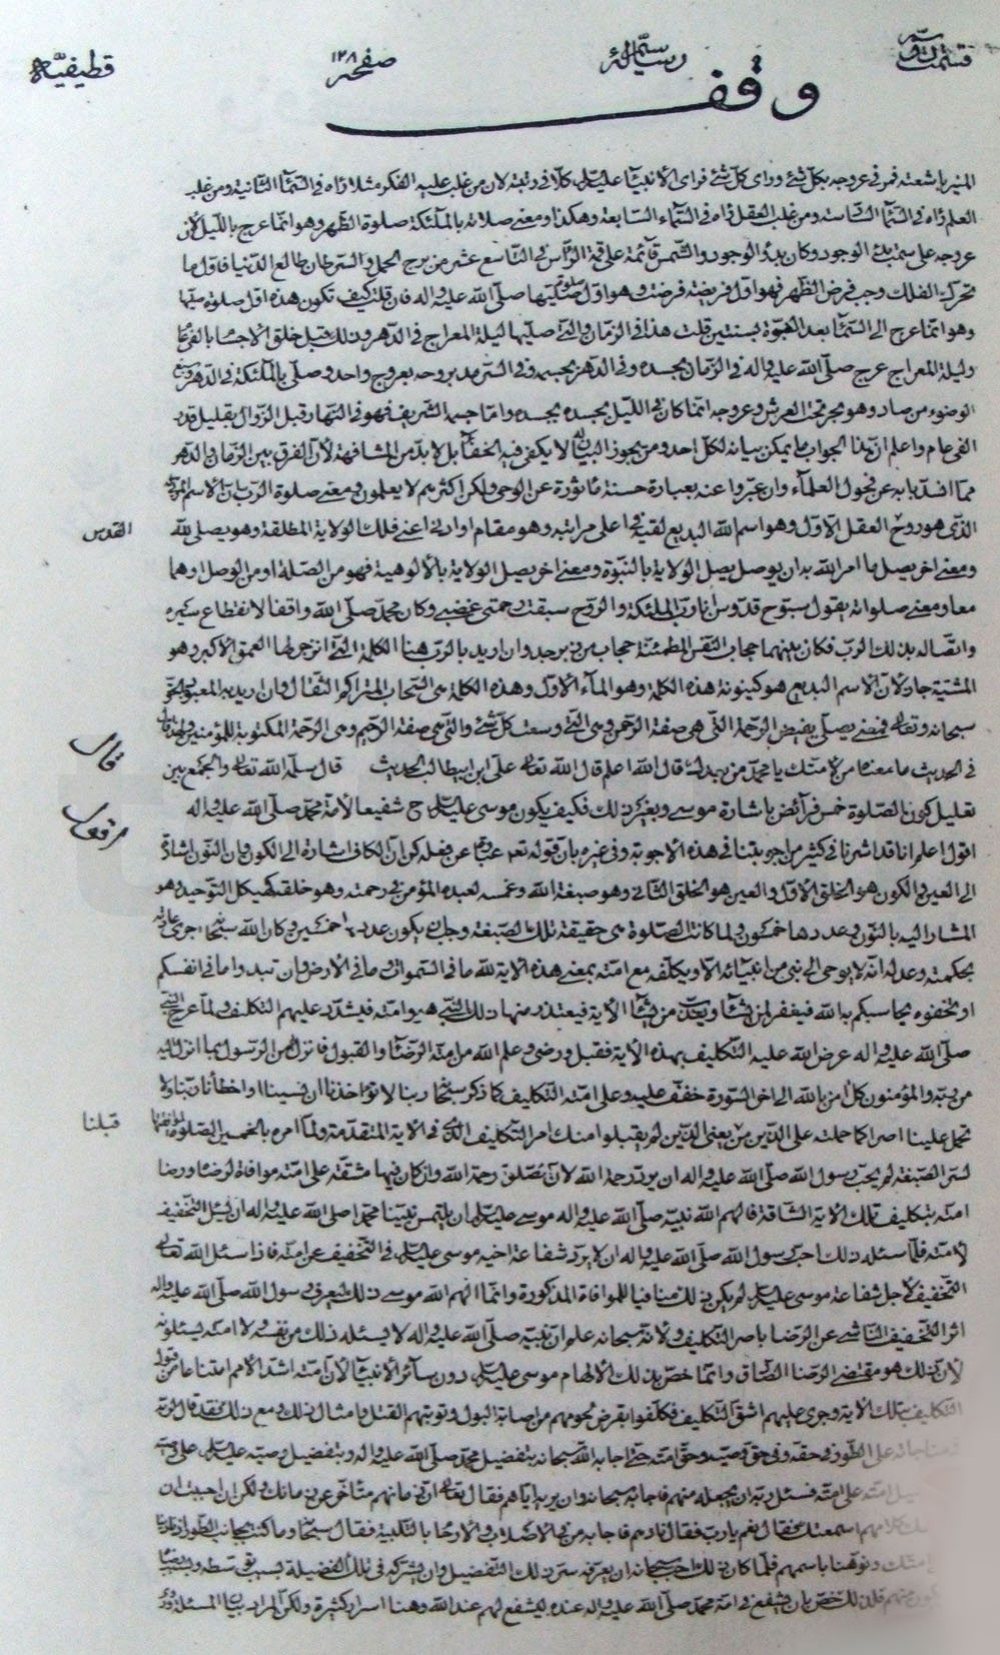 قسمت دويم رسالهٔ صفحه ۱۲۸ قطيفيّه
وقف
المنير باشعته فمر في عروجه بكل شئ وراى كل شئ فراى الانبيآ عليهم السلم كلا في رتبته لان من غلب عليه الفكر مثلا رآه في السمآ الثانية ومن غلب
العلم رآه في السمآ السادسة ومن غلب العقل رآه في السمآء السابعة وهكذا ومعنى صلاته بالملئكة صلوة الظهر وهو انما عرج بالليل لان
عروجه على سمت بدء الوجود وكان بدؤ الوجود والشمس قآئمة على قمة الراس في التاسع عشر من برج الحمل والسرطان طالع الدنيا فاول ما
تحرك الفلك وجب فرض الظهر فهو اول فريضة فرضت وهو اول صلوة صليها صلى الله عليه واله فان قلت كيف تكون هذه اول صلوة صليها
وهو انما عرج الى السمآ بعد النبوة بسنتين قلت هذا في الزمان والتي صليها ليلة المعراج في الدهر وذلك قبل خلق الاجسام بالفي عام
وليلة المعراج عرج صلى الله عليه واله في الزمان بجسده وفي الدهر بجسمه وفي السرمد بروحه بعروج واحد وصلى بالملئكة في الدهر
الوضوء من صاد وهو بحر تحت العرش وعروجه انما كان في الليل بجسده بجسده واما جسمه الشريف فهو في النهار قبل الزوال بقليل قدر
الفي عام واعلم ان هذا الجواب ما يمكن بيانه لكل احد ومن يجوز البيان له لا يكفي فيه الخفآ بل لا بد من المشافهة لان الفرق بين الزمان والدهر
مما انسد بابه عن فحول العلمآء وان عبروا عنه بعبارة حسنة ماثورة عن الوحي ولكن اكثرهم لا يعلمون ومعنى صلوة الرب ان الاسم
الذي هو روح القدس العقل الاول وهو اسم الله البديع لقيه في اعلى مراتبه وهو مقام او ادنى اعني فلك الولاية المطلقة وهو يصلي لله
ومعنى اخر يصل ما امر الله به ان يوصل يصل الولاية بالنبوة ومعنى اخر يصل الولاية بالالوهية فهو من الصلة او من الوصل وهما
معا ومعنى صلواته يقول سبوح قدوس انا رب الملئكة والروح سبقت رحمتي غضبي وكان محمد صلى الله واقفا لانقطاع سيره
واتصاله بذلك الرب فكان بينهما حجاب النفس المطمئنة حجاب من زبرجد وان اريد بالرب هنا الكلمة التي انزجر لها العمق الاكبر وهو
المشية جاز لان الاسم البديع هو كينونة هذه الكلمة وهو المآء الاول وهذه الكلمة هي السحاب المتراكم الثقال وان اريد به المعبود بالحق
سبحانه وتعالى فمعنى يصلي يفيض الرحمة التي هي صفة الرحمن وهي التي وسعت كل شئ والتي هي صفة الرحيم وهي الرحمة المكتوبة للمؤمنين
في الحديث ما معناه من لامتك يا محمد من بعدك قال الله اعلم قال الله تعالى علي ابن ابيطالب الحديث قال سلمه الله تعالى والجمع بين
تعليل كون الصلوة خمس فرآئض باشارة موسى وبغير ذلك فكيف يكون موسى عليه السلم ح شفيعا لامة محمد صلى الله عليه واله
اقول اعلم انا قد اشرنا في كثير من اجوبتنا في هذه الاجوبة وفي غيره بان قوله تعم عن فضله كن ان الكاف اشارة الى الكون وان النون اشارة
الى العين والكون هو الخلق الاول والعين هو الخلق الثاني وهو صبغة الله وغمسه لعبده المؤمن في رحمته وهو خلقه كهيكل التوحيد وهو
المشار اليه بالنون وعددها خمسون ولما كانت الصلوة هي حقيقة تلك الصبغة وجب ان يكون عددها خمسين وكان الله سبحانه اجرى عادته
بحكمته وعدله انه لا يوحي الى نبي من انبيآئه الا ويكلفه مع امته بمعنى هذه الاية لله ما في السموات وما في الارض وان تبدوا ما في انفسكم
او تخفوه يحاسبكم به الله فيغفر لمن يشآ ويعذب من يشآ الاية فيعتذر منها ذلك النبي هو وامته فيشدد عليهم التكليف ولما عرج النبي
صلى الله عليه واله عرض الله عليه التكليف بهذه الاية فقبل ورضي وعلم الله من امته الرضا والقبول فانزل امن الرسول بما انزل اليه
من ربه والمؤمنون كل امن بالله الى اخر السورة خفف عليه وعلى امته التكليف كما ذكر سبحانه ربنا لا تؤاخذنا ان نسينا او اخطأنا ربنا ولا
تحمل علينا اصرا كما حملته على الذين من قبلنا يعنى الذين لم يقبلوا منك امر التكليف الذي في الاية المتقدمة ولما امره بالخمسين الصلوة
لستر الصبغة لم يحب رسول الله صلى الله عليه واله ان يرد رحمة الله لان الصلوة رحمة الله وان كان فيها مشقة على امته موافاة لرضاه ورضا
امته بتكليف تلك الاية الشاقة فالهم الله نبيه صلى الله عليه واله موسى عليه السلم ان يلتمس نبينا محمد صلى الله عليه واله ان يسئل التخفيف
لامته فلما سئله ذلك احب رسول الله صلى الله عليه واله ان لا يرد شفاعة اخيه موسى عليه السلم في التخفيف عن امته فاذا سئل الله تعالى
التخفيف لاجل شفاعة موسى عليه السلم لم يكن ذلك منافيا للموافاة المذكورة وانما الهم الله موسى ذلك ليعرف رسول الله صلى الله عليه واله
اثر التخفيف الناشي عن الرضا باصر التكليف ولانه سبحانه علم ان نبيه صلى الله عليه واله لا يسئله ذلك من نفسه ولا امته يسئلونه
لان ذلك هو مقتضى الرضا الصادق وانما خص بذلك الالهام موسى عليه السلم دون سآئر الانبيآ لان امته اشد الامم امتناعا من قبول
التكليف بتلك الاية وجرى عليهم اشق التكليف فكلفوا بقرض لحومهم من اصابة البول وتوبتهم القتل وامثال ذلك ومع ذلك فقد قال لربه
على الطور في حقه وفي حق وصيه وحق امته حتى اجابه الله سبحانه بتفضيل محمد صلى الله عليه واله وبتفضيل وصيه عليه السلم على وصيه
امته على امته فسئل ربه ان يجعله منهم فاجابه سبحانه وان يريه اياهم فقال تعالى ان زمانهم متاخر عن زمانك ولكن ان احببت ان
كلامهم اسمعتك فقال نعم يا رب فقال نادهم فاجابه من في الاصلاب والارحام بالتلبية فقال سبحانه وما كنت بجانب الطور اذ نادينا
امتك ونوهنا باسمهم فلما كان ذلك احب سبحانه ان يعرفه ستر ذلك التفضيل وان يشركه في تلك الفضيلة بسبب توسطه
منهم فلذلك خص بان يشفع في امة محمد صلى الله عليه واله عنده ليشفع لهم عند الله وهنا اسرار كثيرة ولكن المراد بيان المسئلة
القدس
قال
اقول
قبلنا